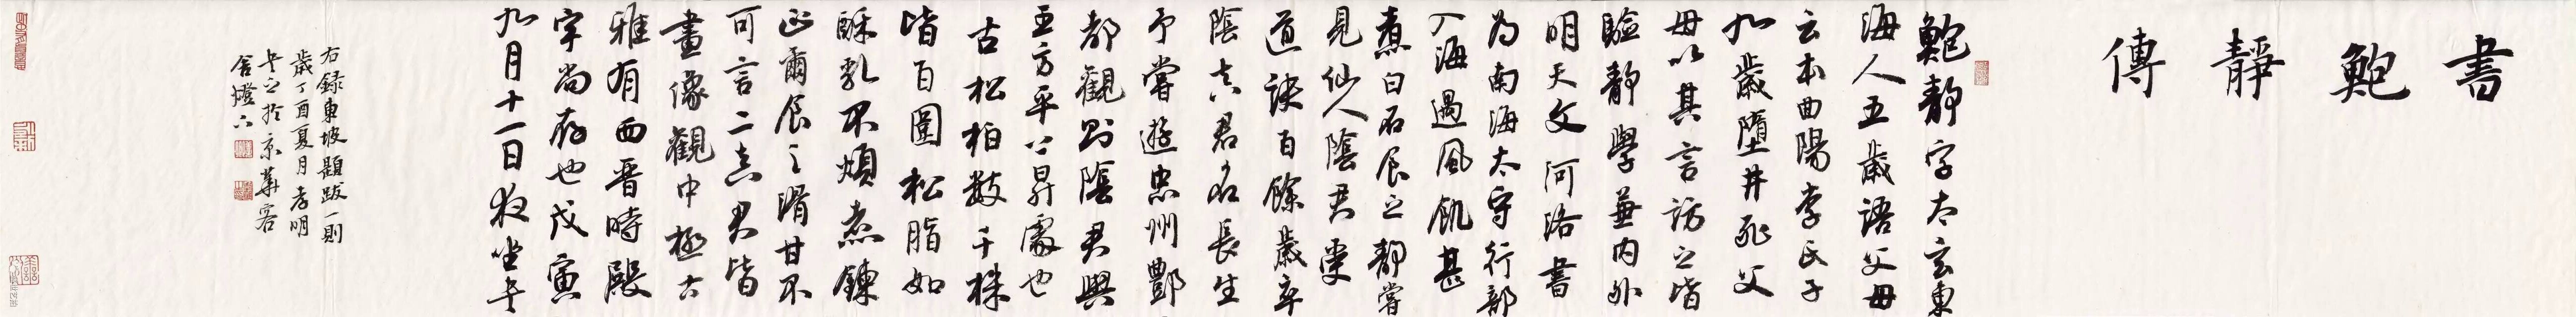 書鮑靜傳
鮑靜字太玄東
海人五歲語父母
云本曲陽李氏子
九歲墮井死父
母以其言訪之皆
驗靜學兼內外
明天文河洛書
為南海太守行部
入海遇風飢甚
煮白石食之靜嘗
見仙人陰君受
道訣百餘歲卒
陰真君名長生
予嘗遊忠州酆
都觀則陰君與
王方平上昇處也
古松柏數千株
皆百圍松脂如
酥乳不煩煮鍊
正爾食之滑甘不
可言二真君皆
畫像觀中極古
雅有西晉時殿
宇尚存也戊寅
九月十一日夜坐書
右錄東坡題跋一則
歲丁酉夏月孝明
書於京華客
舍燈下